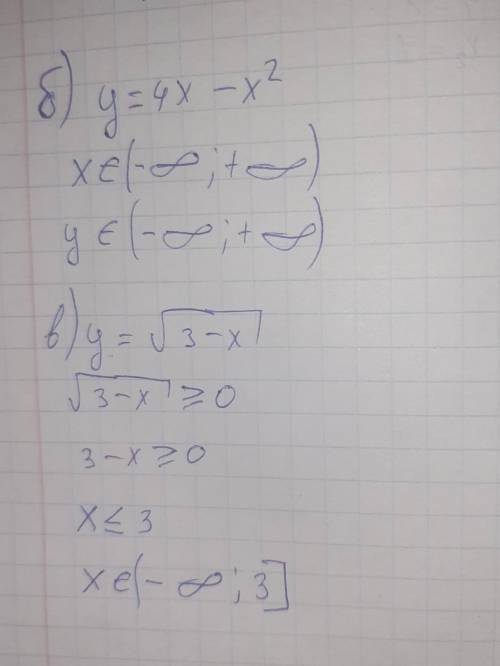 б) y = 4x - x²
x ∈ (-∞; +∞)
y ∈ (-∞; +∞)
в) y = √(3-x)
√(3-x) ≥ 0
3-x ≥ 0
x ≤ 3
x ∈ (-∞; 3]